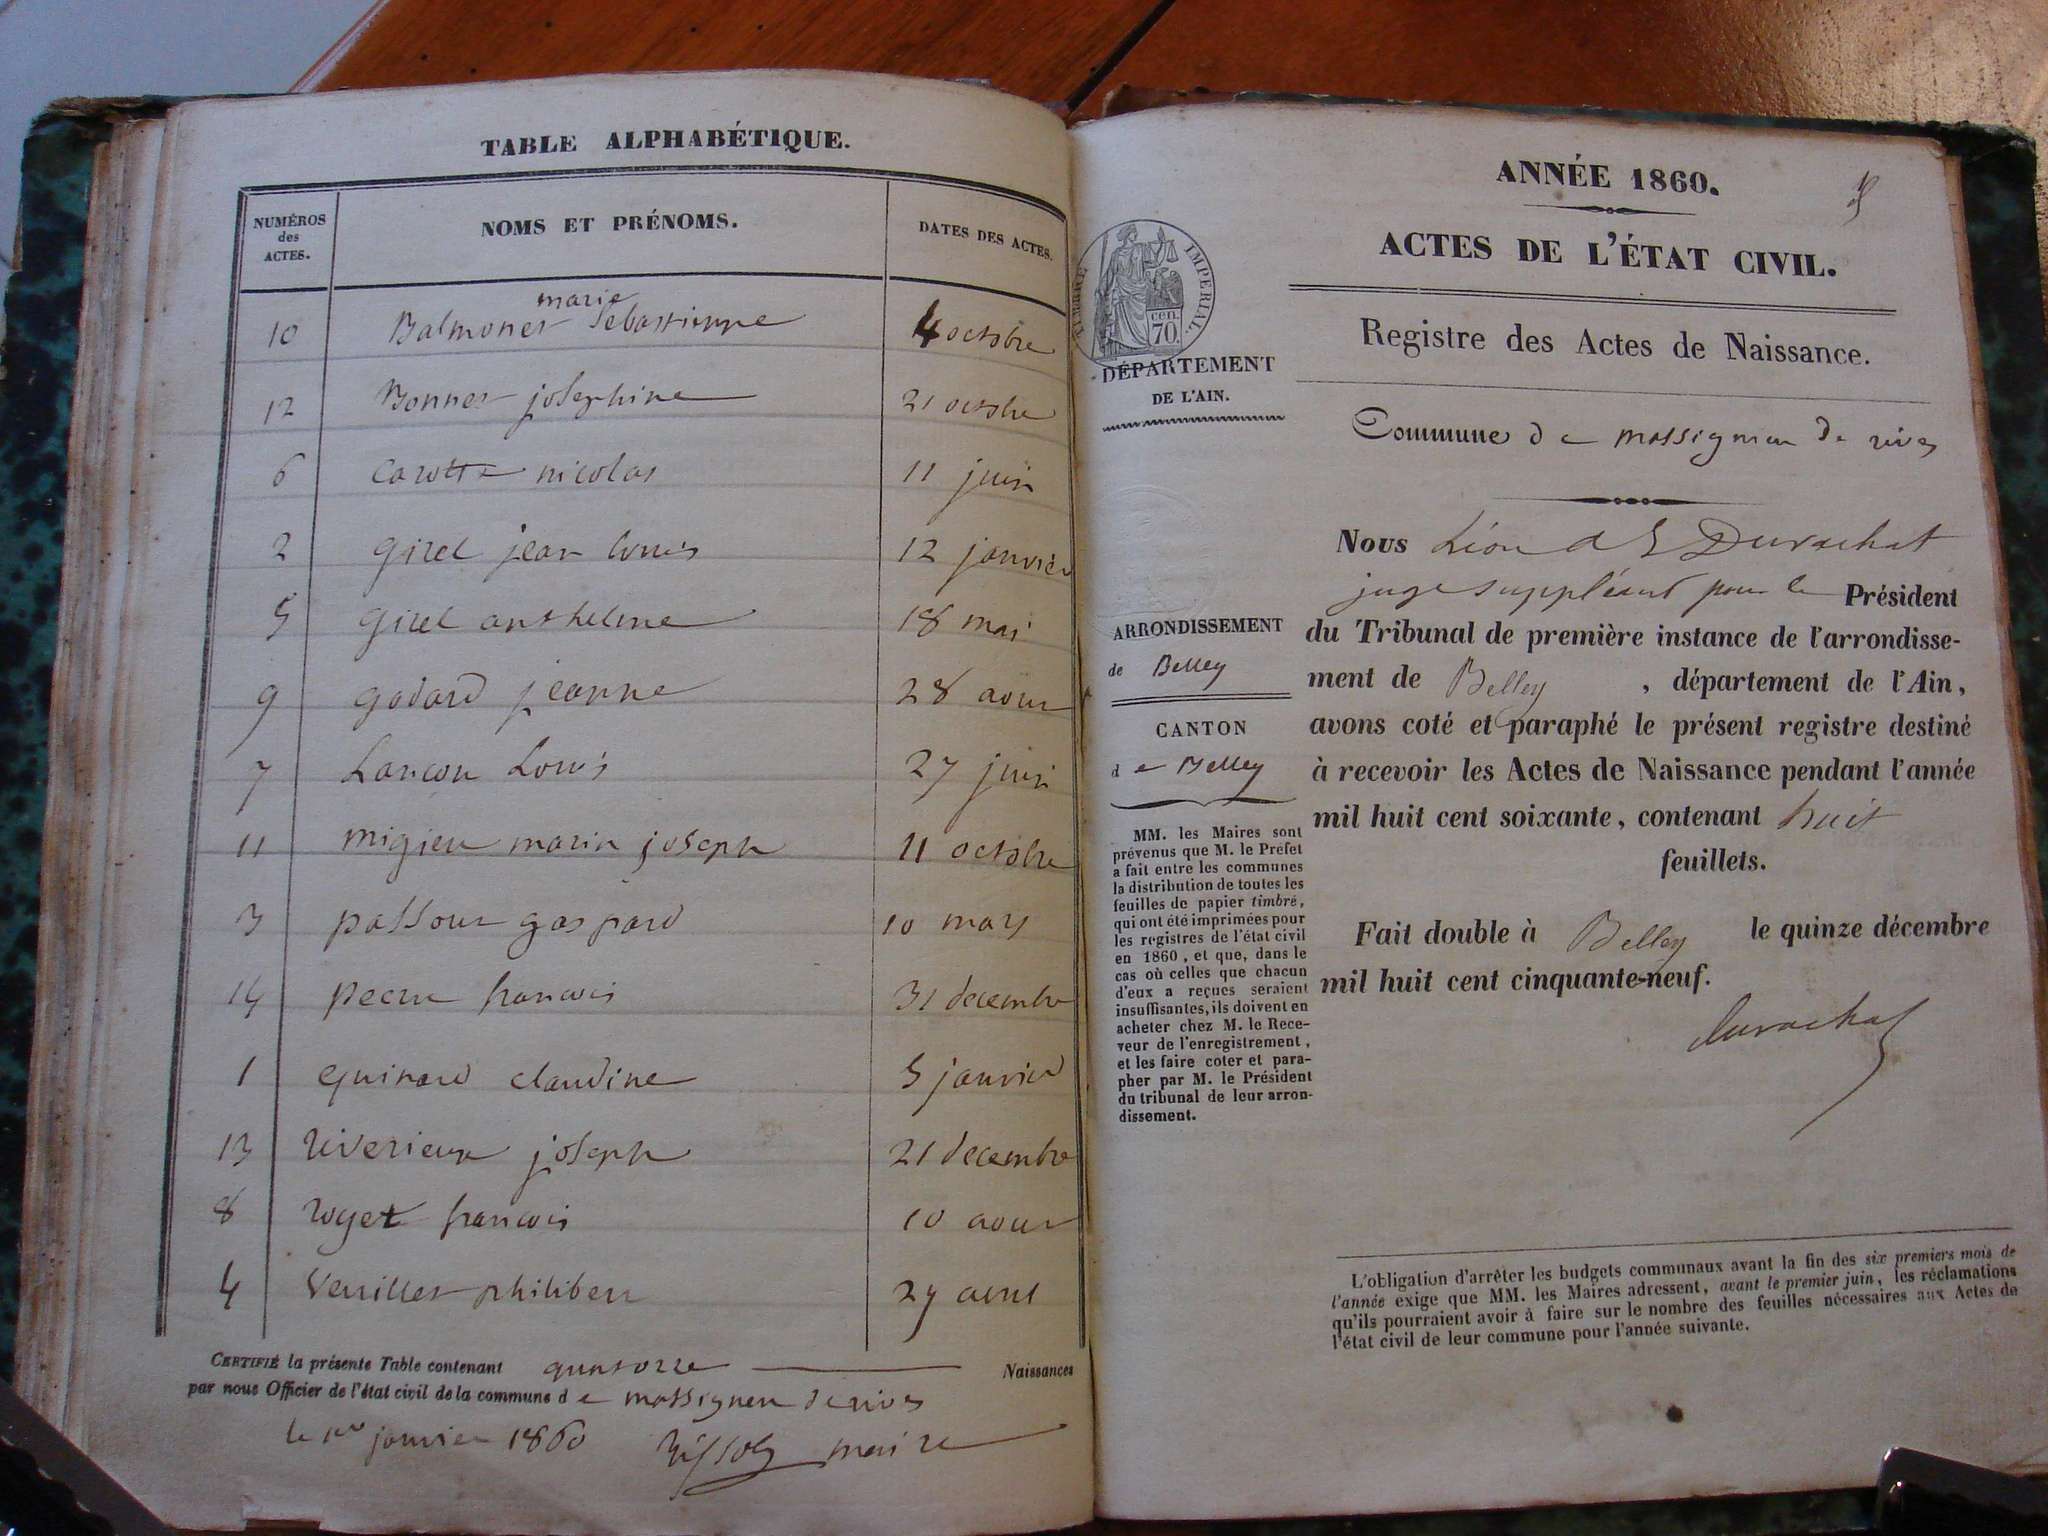 TABLE ALPHABÉTIQUE.
NUMÉROS des ACTES. NOMS ET PRÉNOMS. DATES DES ACTES.
marie
10 Balmonet Sebastienne 4 octobre
12 Bonnet josephine 21 octobre
6 Carotte nicolas 11 juin
2 girel jean louis 12 janvier
5 girel anthelme 18 mai
9 godard jeanne 28 aout
7 Lancon Louis 27 juin
11 migieu marin joseph 11 octobre
3 passour gaspard 10 mars
14 francois 31 decembre
1 quinard claudine 5 janvier
13 Riverieux joseph 21 decembre
8 Roget francois 10 aout
4 philibert 27 avril
CERTIFIÉ la présente Table contenant quatorze Naissances
par nous Officier de l'état civil de la commune d e massigneu de rives
le 1er janvier 1860 maire
ANNÉE 1860.
ACTES DE L'ÉTAT CIVIL.
TIMBRE IMPÉRIAL.
cen. 70.
Registre des Actes de Naissance.
DÉPARTEMENT
DE L'AIN.
Commune d e massigneu de rives
Nous Léon Durochat
juge suppléant pour le Président
du Tribunal de première instance de l'arrondisse-
ment de Belley, département de l'Ain,
avons coté et paraphé le présent registre destiné
à recevoir les Actes de Naissance pendant l'année
mil huit cent soixante, contenant huit
feuillets.
Fait double à Belley le quinze décembre
mil huit cent cinquante-neuf.
Durochat
ARRONDISSEMENT
de Belley
CANTON
d e Belley
MM. les Maires sont
prévenus que M. le Préfet
a fait entre les communes
la distribution de toutes les
feuilles de papier timbré,
qui ont été imprimées pour
les registres de l'état civil
en 1860, et que, dans le
cas où celles que chacun
d'eux a reçues seraient
insuffisantes, ils doivent en
acheter chez M. le Rece-
veur de l'enregistrement,
et les faire coter et para-
pher par M. le Président
du tribunal de leur arron-
dissement.
L'obligation d'arrêter les budgets communaux avant la fin des six premiers mois de
l'année exige que MM. les Maires adressent, avant le premier juin, les réclamations
qu'ils pourraient avoir à faire sur le nombre des feuilles nécessaires aux Actes de
l'état civil de leur commune pour l'année suivante.